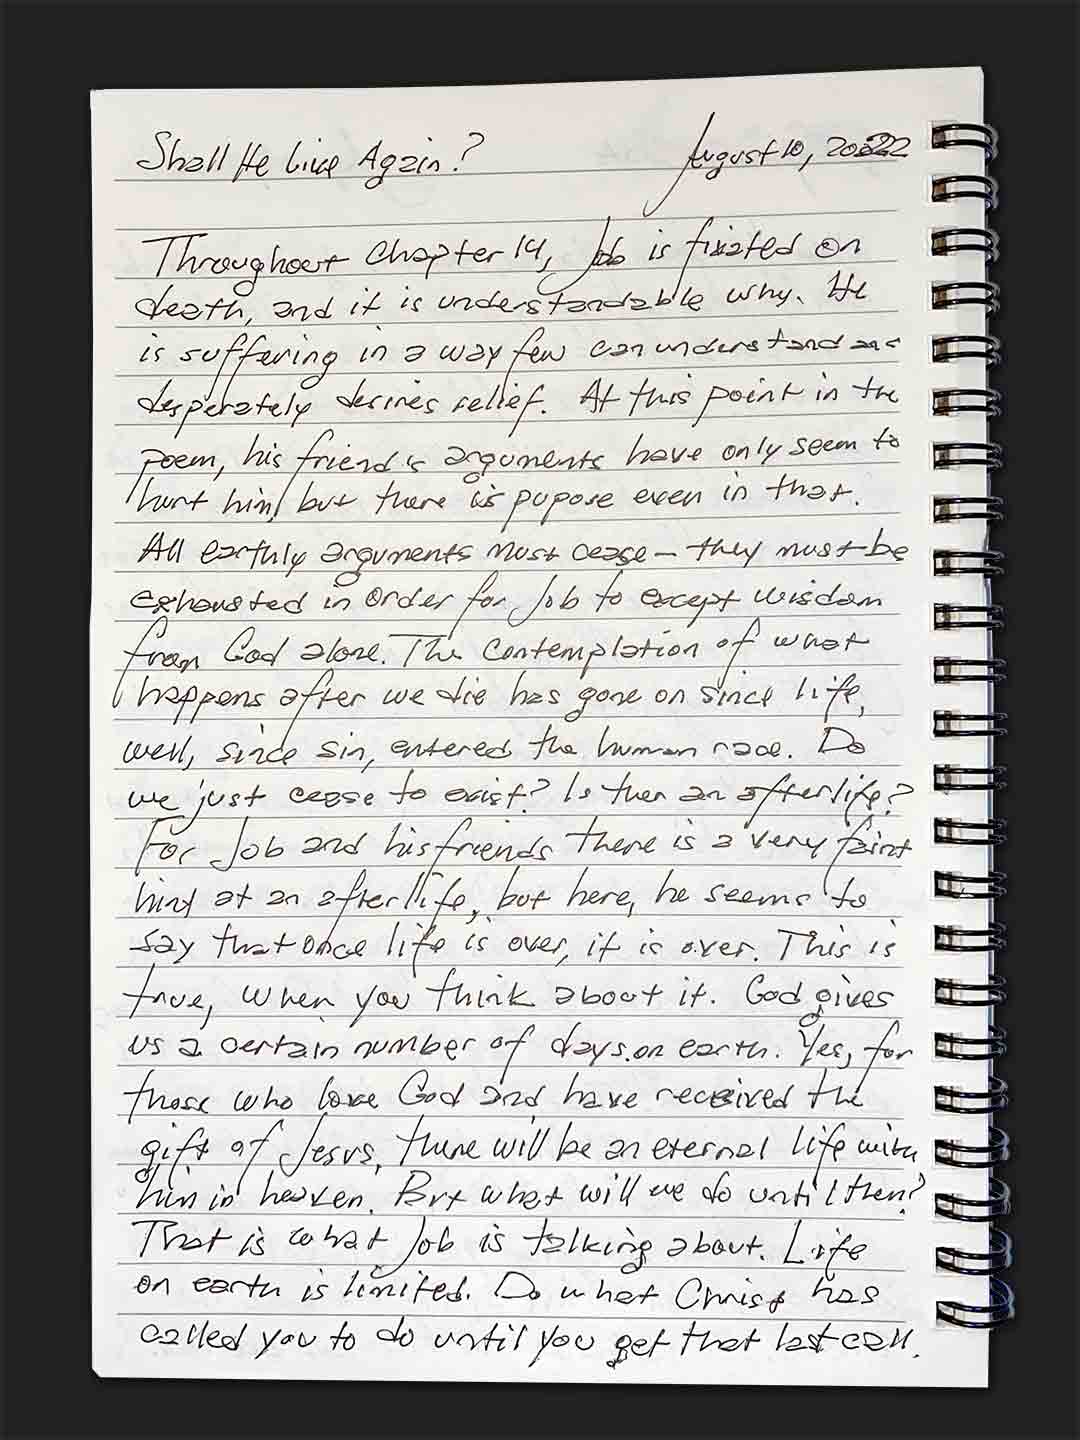 Shall He Live Again? August 10, 2022
Throughout Chapter 14, Job is fixated on
death, and it is understandable why. He
is suffering in a way few can understand and
desperately desires relief. At this point in the
poem, his friend's arguments have only seem to
hurt him, but there is pupose even in that.
All earthly arguments must cease – they must be
exhausted in order for Job to except wisdom
from God alone. The contemplation of what
happens after we die has gone on since life,
well, since sin, entered the human race. Do
we just cease to exist? Is ther an afterlife?
For Job and his friends there is a very faint
hint at an afterlife, but here, he seems to
say that once life is over, it is over. This is
true, when you think about it. God gives
us a certain number of days on earth. Yes, for
those who love God and have received the
gift of Jesus, there will be an eternal life with
him in heaven. But what will we do until then?
That is what Job is talking about. Life
on earth is limited. Do what Christ has
called you to do until you get that last call.